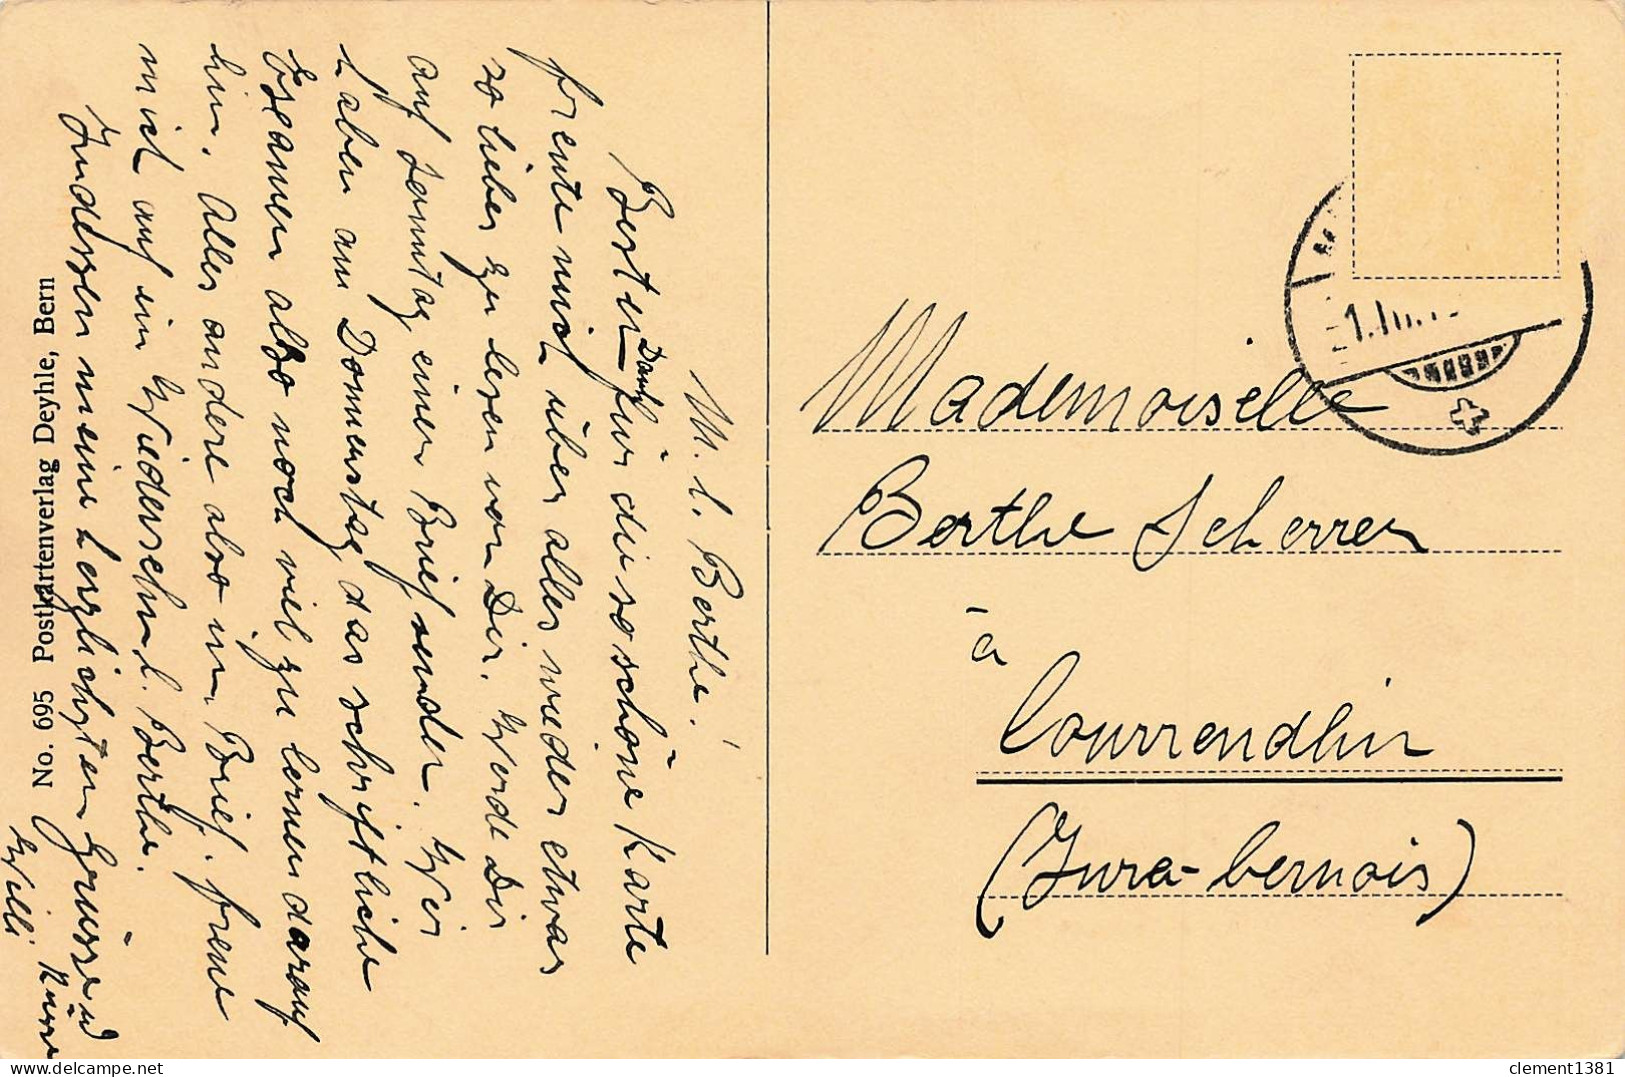 M. l. Berthe!
Besten Dank für die so schöne Karte
freute mich über alles wieder etwas
so liebes zu lesen von Dir. Werde Dir
auf Sonntag einen Brief senden. Wir
haben am Donnerstag das schriftliche
Examen also noch viel zu lernen darauf
hin. Alles andere also im Brief. freue
mich auf ein Wiedersehn l. Berthe.
Indessen meine herzlichsten Grüsse u
Küsse
Willi
No. 695 Postkartenverlag Deyhle, Bern
Mademoiselle
Berthe Scherrer
à
Courrendlin
(Jura-bernois)
delcampe.net
clement1381